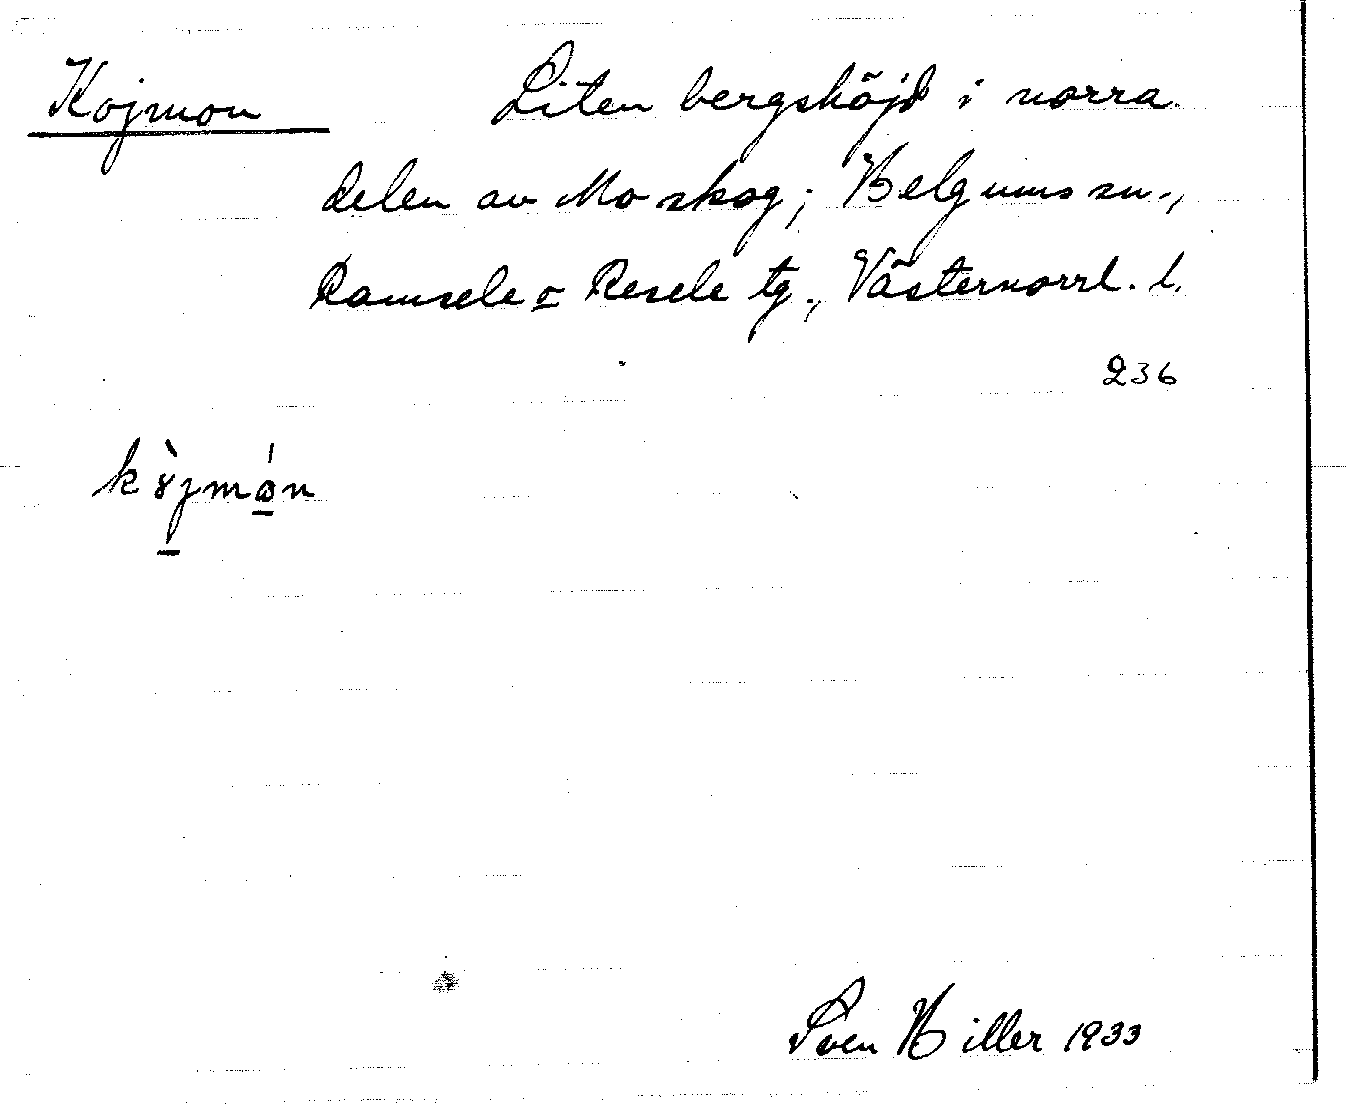 Kojmon Liten bergshöjd i norra
delen av Mo skog; Helgums sn.,
Ramsele o Resele tg., Västernorrl. l.
236
Sven Hiller 1933